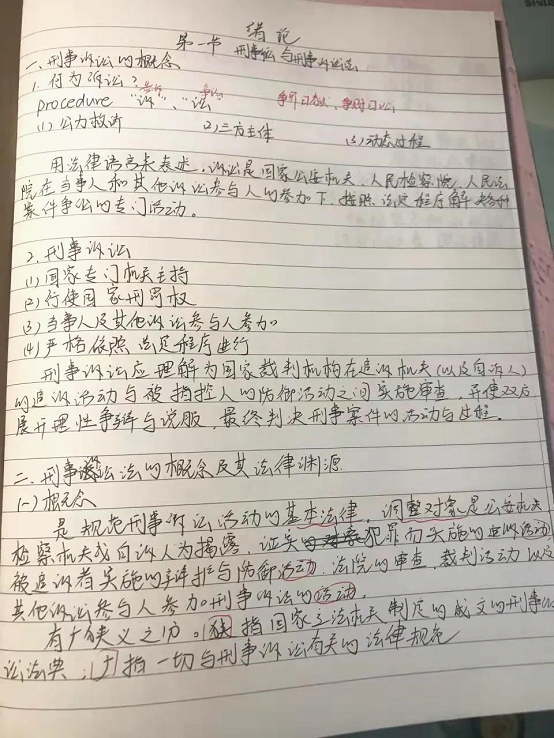 绪论
第一节 刑事诉讼与刑事诉讼法
一、刑事诉讼的概念
1. 何为诉讼？
告诉 争讼
procedure "诉"、"讼"
(1) 公力救济 (2) 三方主体 (3) 动态过程
用法律语言来表述，诉讼是国家公安机关、人民检察院、人民法
院在当事人和其他诉讼参与人的参加下，按照法定程序解决各种
案件争讼的专门活动。
2. 刑事诉讼
(1) 国家专门机关主持
(2) 行使国家刑罚权
(3) 当事人及其他诉讼参与人参加
(4) 严格依照法定程序进行
刑事诉讼应理解为国家裁判机构在追诉机关(以及自诉人)
的追诉活动与被指控人的防御活动之间实施审查，并使双方
展开理性争辩与说服，最终判决刑事案件的活动与过程。
二、刑事诉讼法的概念及其法律渊源
(一) 概念
是规范刑事诉讼活动的基本法律。调整对象是公安机关
检察机关或自诉人为揭露、证实犯罪而实施的追诉活动
被追诉者实施的辩护与防御活动，法院的审查、裁判活动以及
其他诉讼参与人参加刑事诉讼的活动。
有广狭义之分。狭指国家立法机关制定的成文的刑事诉
讼法典；广指一切与刑事诉讼有关的法律规范